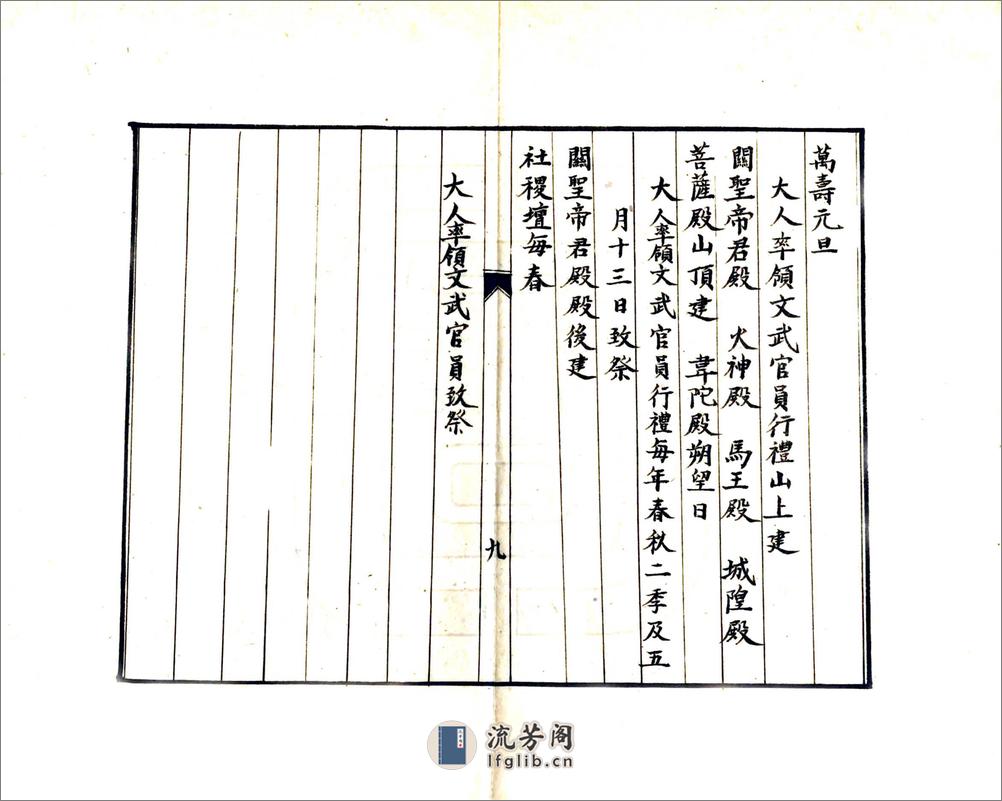 萬壽元旦
大人率領文武官員行禮山上建
關聖帝君殿　火神殿　馬王殿　城隍殿
菩薩殿山頂建　韋陀殿朔望日
大人率領文武官員行禮每年春秋二季及五
月十三日致祭
關聖帝君殿殿後建
社稷壇每春
九
大人率領文武官員致祭
流芳阁
lfglib.cn